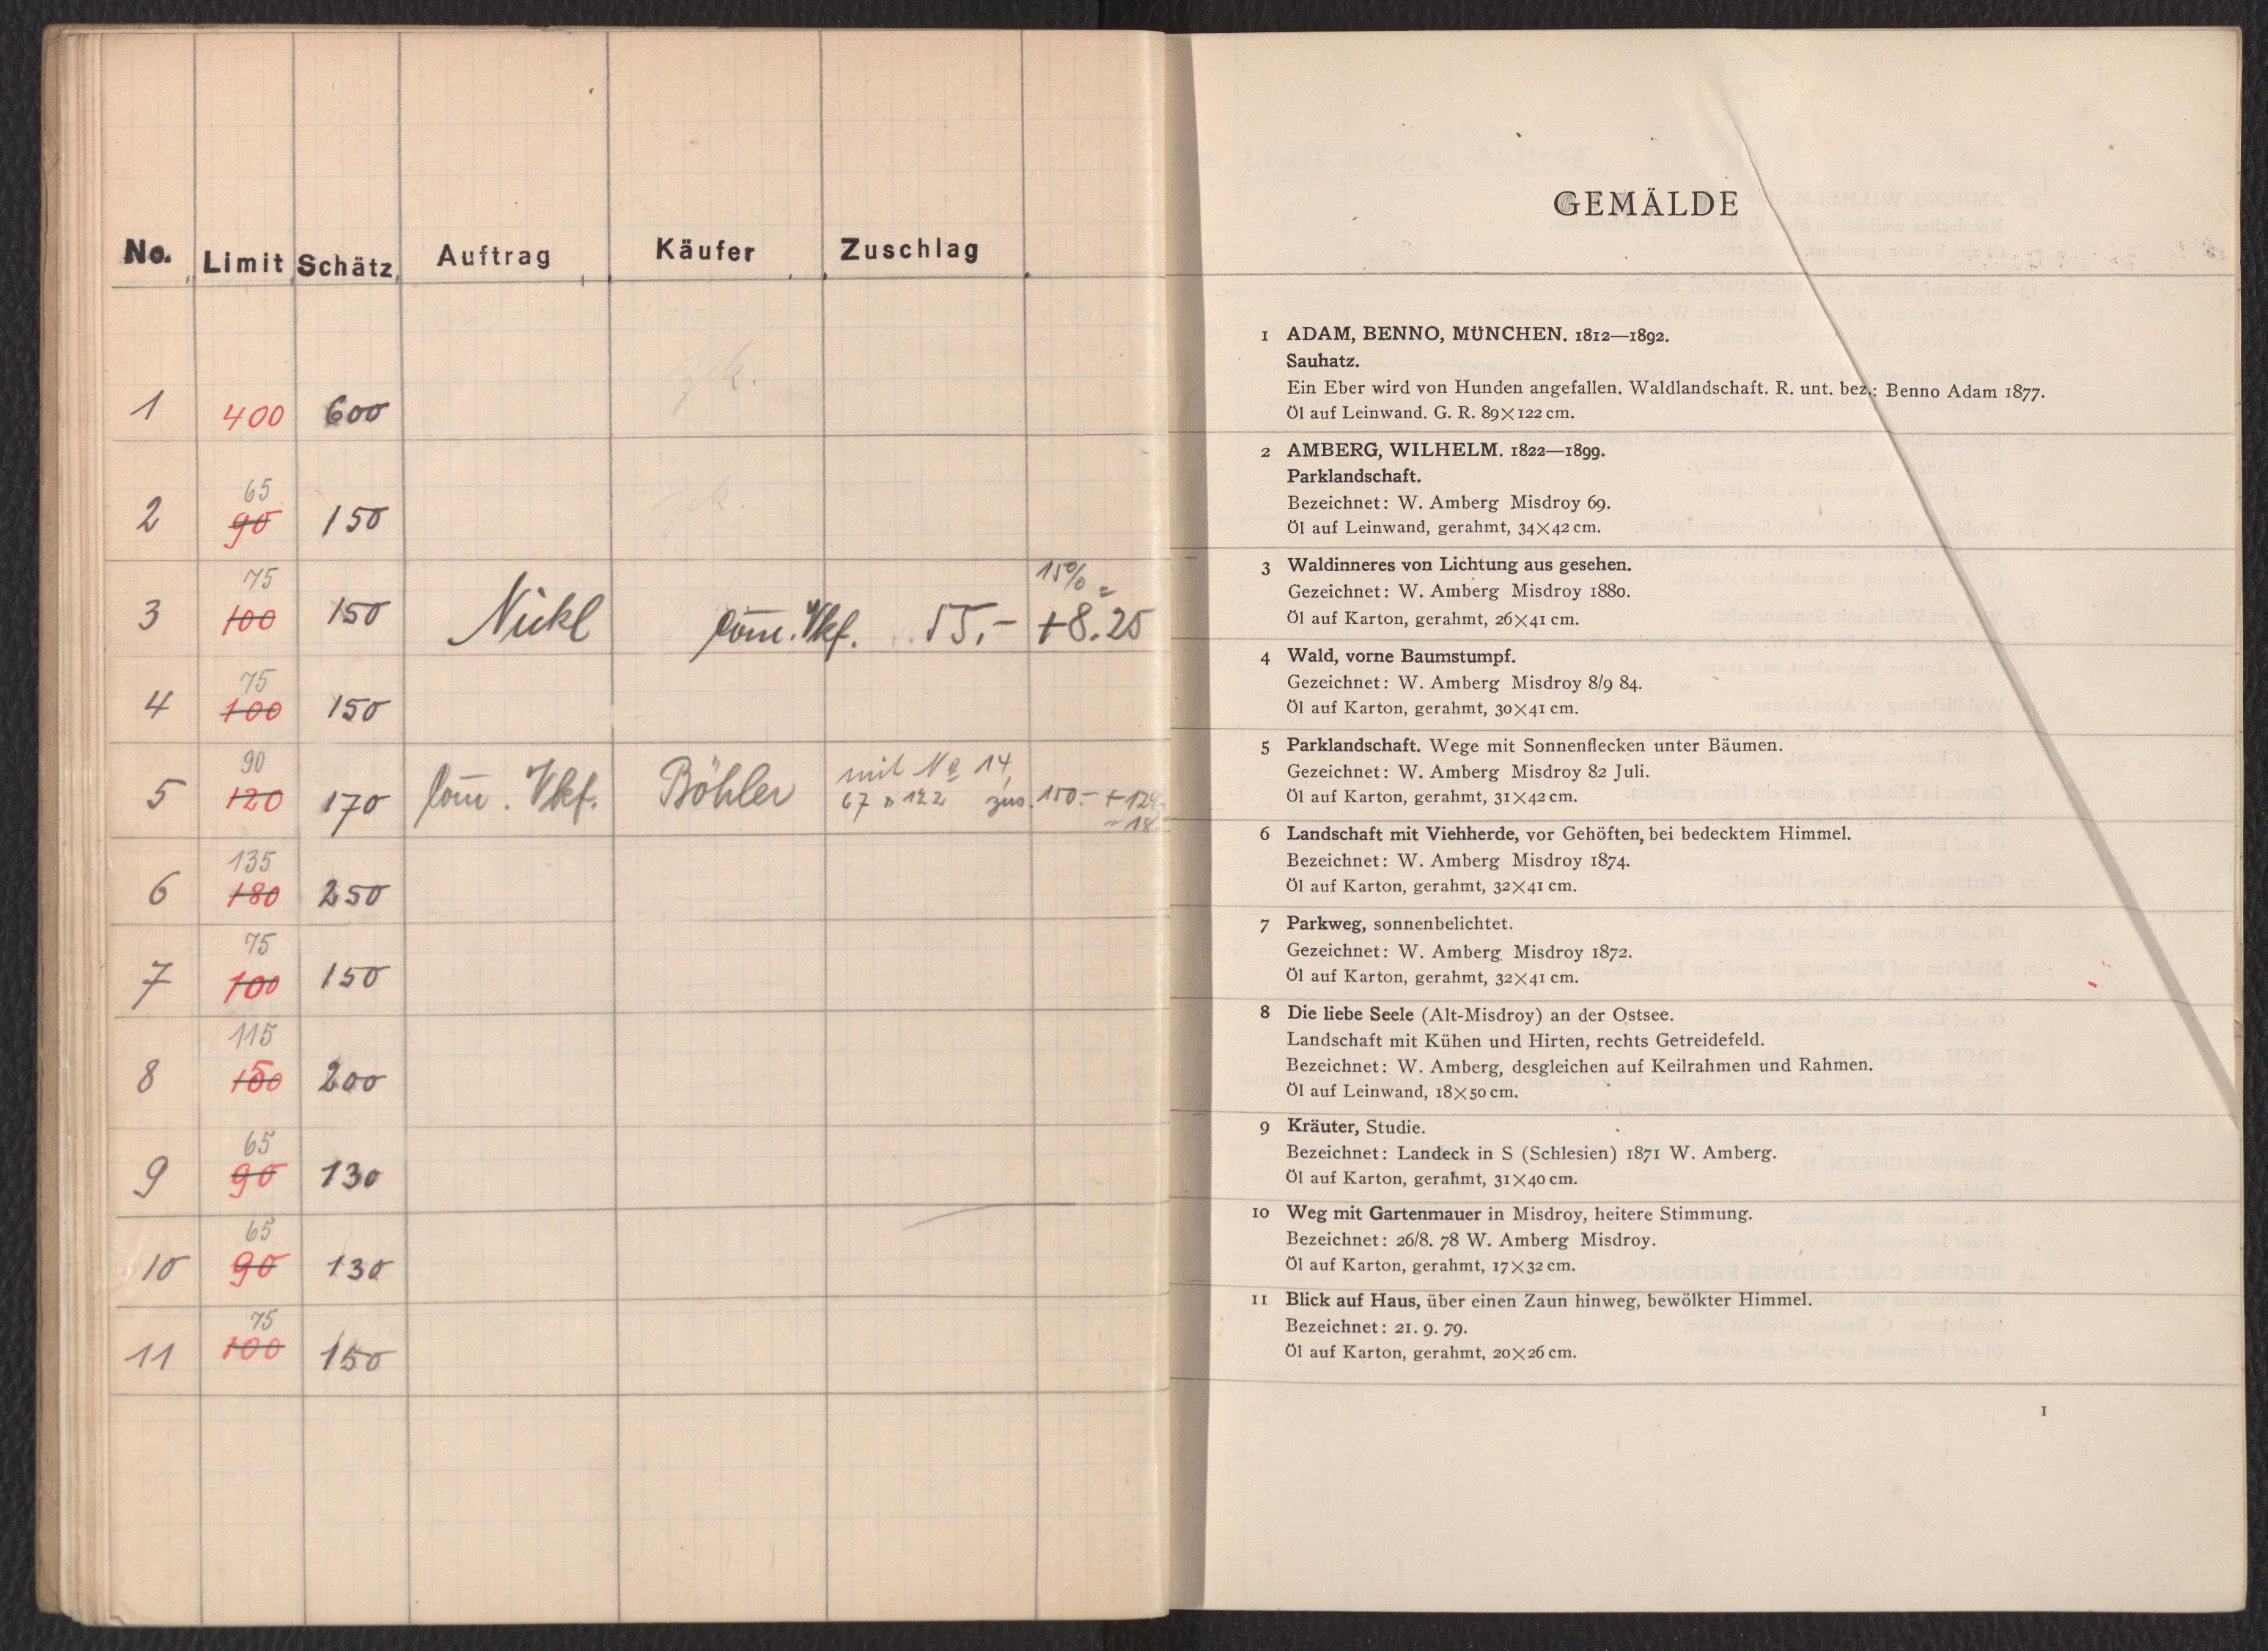 No. Limit Schätz. Auftrag Käufer Zuschlag
1 400 600
65
2 90 150
75 15% =
3 100 150 Nickl com. Vkf. 55.- +8.25
75
4 100 150
90 mit No 14,
5 120 170 com. Vkf. Böhler 67 " 122 zus. 150.- +12%
= 18
135
6 180 250
75
7 100 150
115
8 150 200
65
9 90 130
65
10 90 130
75
11 100 150
GEMÄLDE
1 ADAM, BENNO, MÜNCHEN. 1812—1892.
Sauhatz.
Ein Eber wird von Hunden angefallen. Waldlandschaft. R. unt. bez.: Benno Adam 1877.
Öl auf Leinwand. G. R. 89×122 cm.
2 AMBERG, WILHELM. 1822—1899.
Parklandschaft.
Bezeichnet: W. Amberg Misdroy 69.
Öl auf Leinwand, gerahmt, 34×42 cm.
3 Waldinneres von Lichtung aus gesehen.
Gezeichnet: W. Amberg Misdroy 1880.
Öl auf Karton, gerahmt, 26×41 cm.
4 Wald, vorne Baumstumpf.
Gezeichnet: W. Amberg Misdroy 8/9 84.
Öl auf Karton, gerahmt, 30×41 cm.
5 Parklandschaft. Wege mit Sonnenflecken unter Bäumen.
Gezeichnet: W. Amberg Misdroy 82 Juli.
Öl auf Karton, gerahmt, 31×42 cm.
6 Landschaft mit Viehherde, vor Gehöften, bei bedecktem Himmel.
Bezeichnet: W. Amberg Misdroy 1874.
Öl auf Karton, gerahmt, 32×41 cm.
7 Parkweg, sonnenbelichtet.
Gezeichnet: W. Amberg Misdroy 1872.
Öl auf Karton, gerahmt, 32×41 cm.
8 Die liebe Seele (Alt-Misdroy) an der Ostsee.
Landschaft mit Kühen und Hirten, rechts Getreidefeld.
Bezeichnet: W. Amberg, desgleichen auf Keilrahmen und Rahmen.
Öl auf Leinwand, 18×50 cm.
9 Kräuter, Studie.
Bezeichnet: Landeck in S (Schlesien) 1871 W. Amberg.
Öl auf Karton, gerahmt, 31×40 cm.
10 Weg mit Gartenmauer in Misdroy, heitere Stimmung.
Bezeichnet: 26/8. 78 W. Amberg Misdroy.
Öl auf Karton, gerahmt, 17×32 cm.
11 Blick auf Haus, über einen Zaun hinweg, bewölkter Himmel.
Bezeichnet: 21. 9. 79.
Öl auf Karton, gerahmt, 20×26 cm.
1